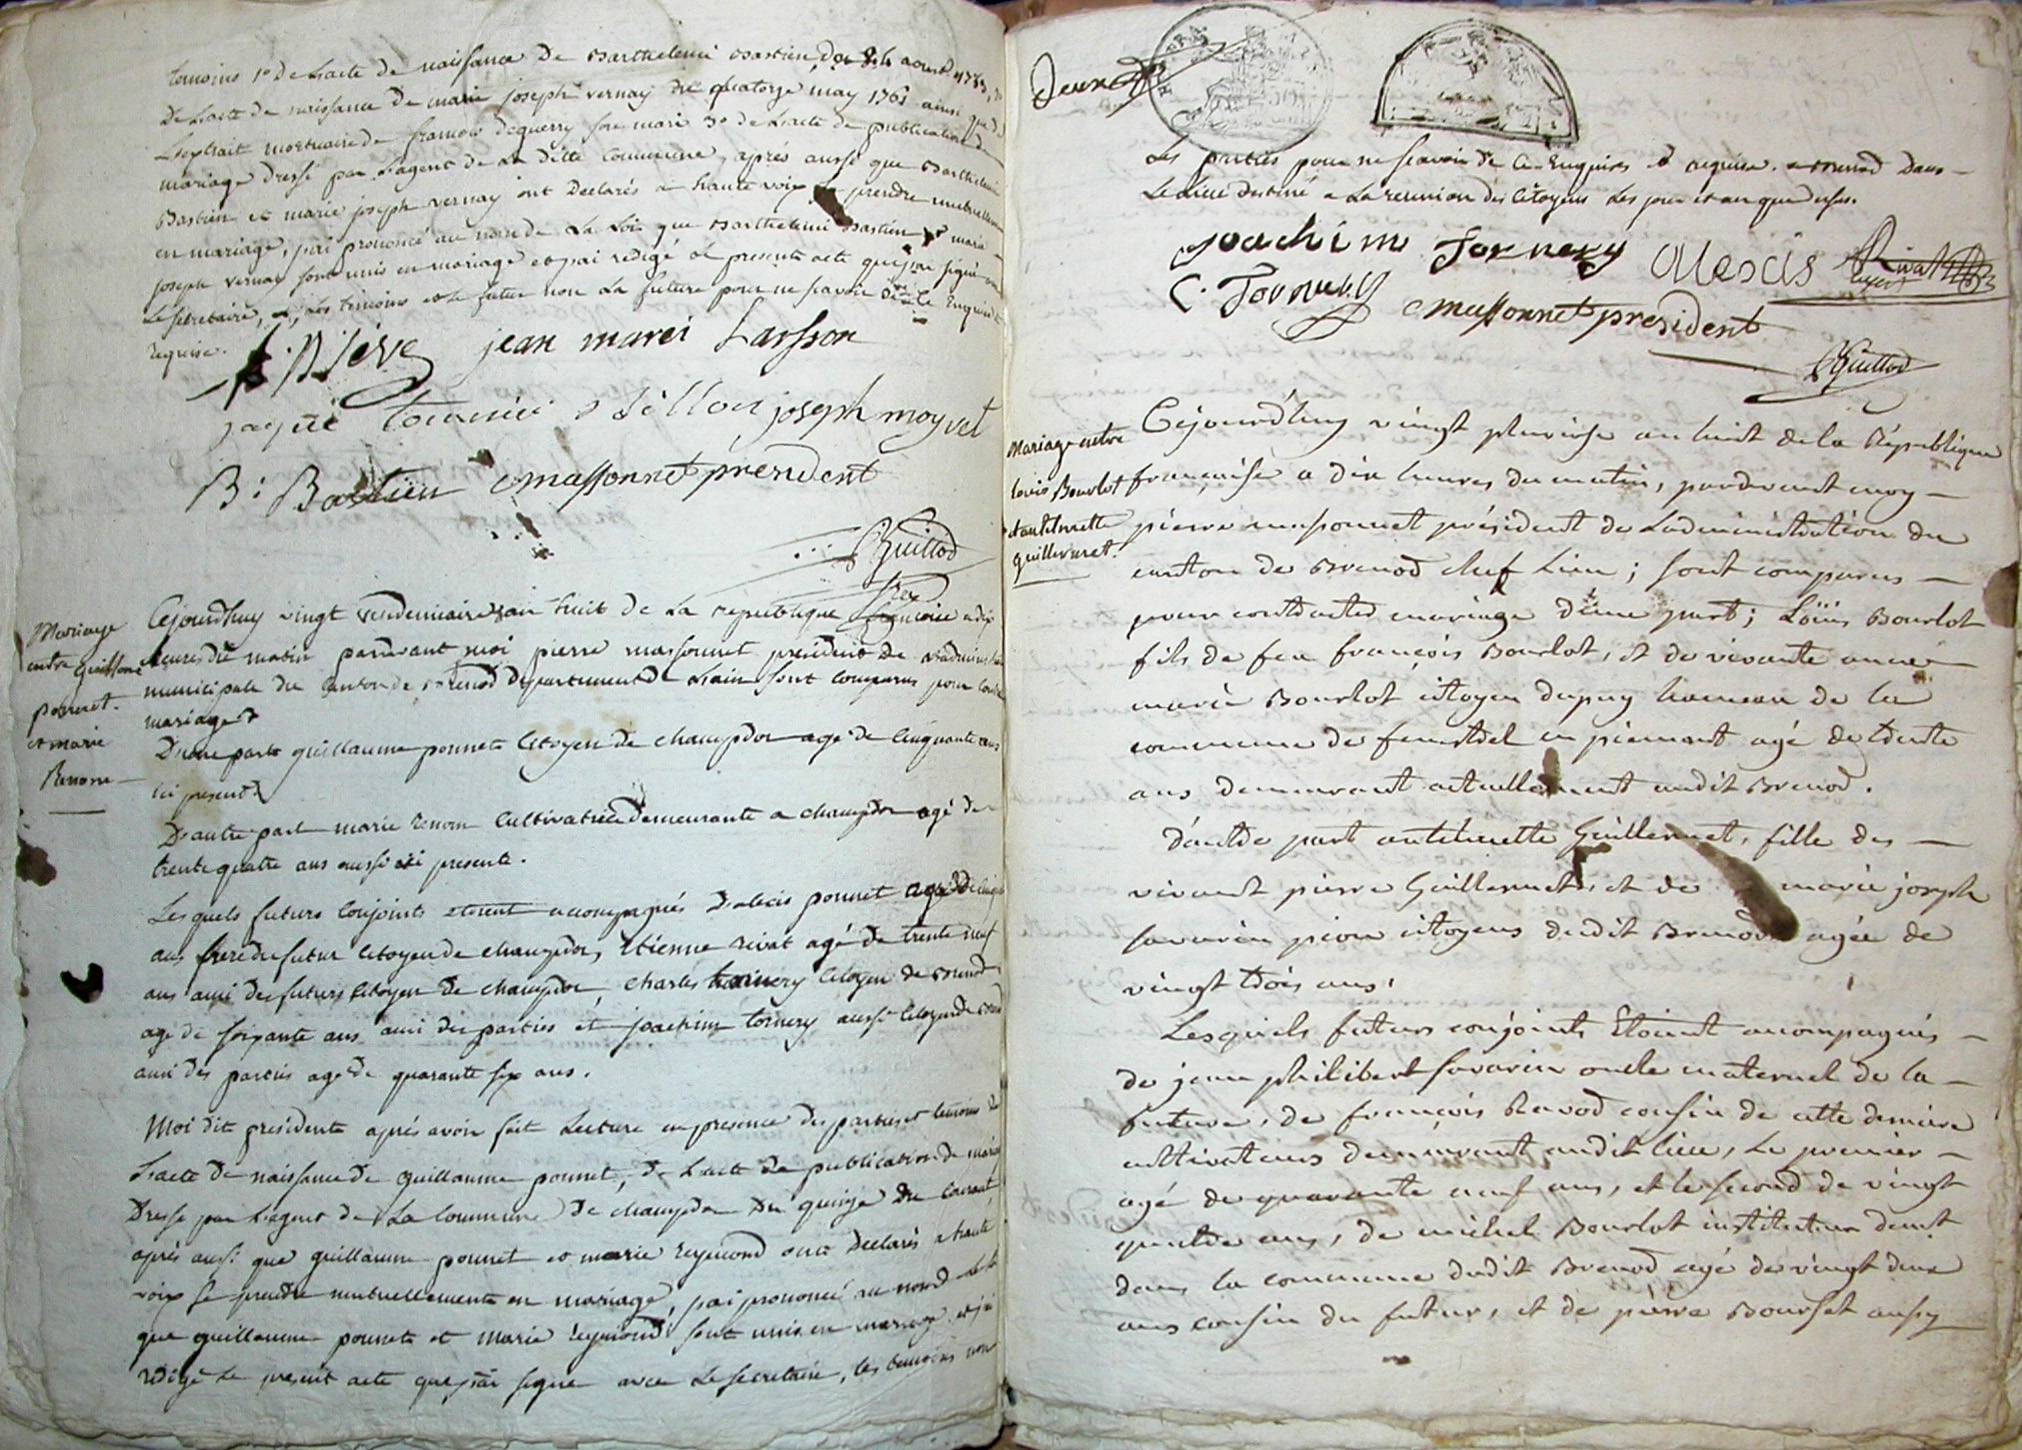 temoins 1º de Lacte de naissance de Barthelemi Bastien, du 24 aoust
De Lacte de naissance de marie joseph vernay du quatorze may 1761 ainsi que de
Lextrait mortuaire de francois deguerry son mari 3º de Lacte de publication de
mariage dressé par Lagent de La dette Commune, après aussi que Barthelemi
Bastien et marie joseph vernay ont Declarés a haute voix Se prendre mutuellement
en mariage, j'ai prononcé au nom de La Loi que Barthelemi Bastien et marie
joseph vernay sont unis en mariage et j'ai redigé le present acte que j'ai signé avec
Le Secretaire, Les temoins et le futur non La future pour ne scavoir de ce Enquise et
requise.
jean marei Larsson
jaque tournié joseph moynet
B: Bastien Massonnet president
Guillod
Mariage
entre guillaume
ponnet
et marie
Renom
Cejourdhuy vingt vendemiaire an huit de La republique francoise a dix
heures du matin pardevant moi pierre massonnet president de Ladministration
municipale du Canton de Brenod departement de Lain sont Comparus pour Contracter
mariage
D'une part guillaume ponnet Citoyen de champdor agé de Cinquante ans
ici present.
D'autre part marie renom Cultivatrice demeurante a champdor agé de
trente quatre ans aussi ici presente.
Lesquels futurs Conjoints etoient accompagnés D'alexis ponnet agé de
ans frere du futur Citoyen de champdor, Etienne rivat agé de trente neuf
ans ami des futurs Citoyen de champdor, Charles tornery Citoyen de Brenod
agé de soixante ans ami des parties et joachim tornery aussi Citoyen de Brenod
ami des parties agé de quarante six ans.
Moi dit president après avoir fait Lecture en presence des parties et temoins de
Lacte de naissance de guillaume ponnet, de Lacte de publication de mariage
Dressé par Lagent de La Commune de champdor du quinze du Courant
après aussi que guillaume ponnet et marie reymond ont Declarés a haute
voix se prendre mutuellement en mariage, j'ai prononcé au nom de la loi
que guillaume ponnet et marie reymond sont unis en mariage et j'ai
redigé le present acte que j'ai signé avec Le Secretaire, les temoins non
Les parties pour ne scavoir de ce Enquises et requises. a Brenod Dans
Le Lieu destiné a La reunion des Citoyens Les jour et an que dessus.
Joachim Tornery Alexis Rivat
C. Tornery Massonnet president
Guillod
Mariage entre
Louis Bourlot
et anthelmette
guillermet.
Cejourd'huy vingt pluviose an huit de la République
française a dix heures du matin, pardevant moy
pierre massonnet président de Ladministration du
canton de Brenod chef Lieu; sont comparus
pour contracter mariage d'une part; Loüis Bourlot
fils de feu françois Bourlot, et de vivante anne
marie Bourlot citoyen dupuy hameau de la
commune de fenestrel en piemont agé de trente
ans demeurant actuellement audit Brenod.
d'autre part antelmette Guillermet, fille des
vivant pierre Guillermet, et de marie joseph
savarin pion citoyens dudit Brenod agée de
vingt trois ans.
Lesquels futurs conjoints Etoient accompagnés
de jean philibert savarin oncle maternel de la
future, de françois Ravod cousin de cette derniere
cultivateurs demeurant audit lieu, Le premier
agé de quarante neuf ans, et le second de vingt
quatre ans, de michel Bourlot instituteur demt
dans la commune dudit Brenod agé de vingt deux
ans cousin du futur, et de pierre Bourset aussy